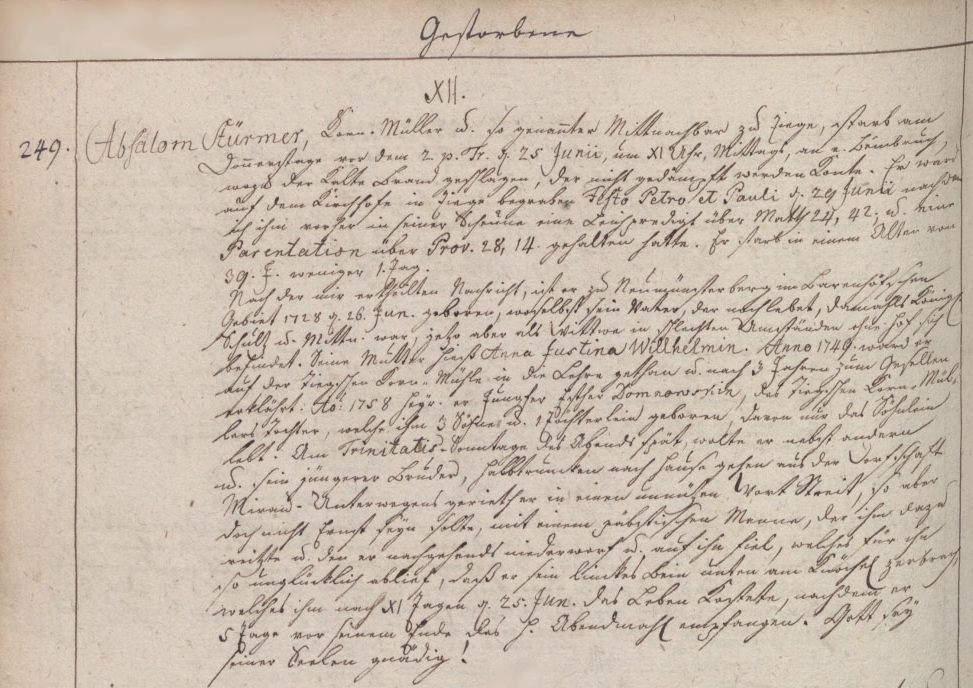 Gestorbene
XII.
249. Absalom Stürmer, Korn-Müller u. so genannter Mittnachbar zu Tiege, starb am
Donnerstage vor dem 2. p. Tr. d. 25 Junii, um XI Uhr, Mittags, an e. Beinbruch,
wozu der Kalte Brand geschlagen, der nicht gedämpft werden konte. Er ward
auf dem Kirchhofe in Tiege begraben Festo Petro et Pauli d. 29 Junii nachdem
ich ihm vorher in seiner Scheune eine Leichpredigt über Matth 24, 42. u. eine
Parentation über Prov. 28, 14. gehalten hatte. Er starb in einem Alter von
39. J. weniger 1. Tag.
Nach der mir ertheilten Nachricht, ist er zu Neumünsterberg im Barenhöfschen
Gebiet 1728 d. 26. Jun. geboren, woselbst sein Vater, der noch lebet, damahls Königl
Schulz u. Mittn. war, jetzo aber als Wittwer in schlechten Umständen ohne Hof sich
befindet. Seine Mutter hiess Anna Justina Willhelmin. Anno 1749. ward er
auf der Tiegschen Korn-Mühle in die Lehre gethan u. nach 3 Jahren zum Gesellen
erklährt. Ao: 1758 heyr. er Jungfer Esther Domnowskin, des Tiegschen Korn-Mül-
lers Tochter, welche ihm 3 Söhne u. 1 Töchterlein geboren, davon nur das Söhnlein
lebt. Am Trinitatis-Sonntage des Abends spät, wolte er nebst andern
u. sein jüngerer Bruder, halbtrunken nach Hause gehen aus der Dorfschaft
Mirau. Unterwegens gerieth er in einen unnützen Wort Streit, so aber
doch nicht Ernst seyn solte, mit einem päbstischen Manne, der ihn dazu
reitzte u. den er nachgehends niederworf u. auf ihn fiel, welches für ihn
so unglücklich ablief, daß er sein linckes Bein unten am Knöchel zerbrach,
welches ihm nach XI Tagen d. 25. Jun. das Leben kostete, nachdem er
5 Tage vor seinem Ende das H. Abendmahl empfangen. Gott sey
seiner Seelen gnädig!